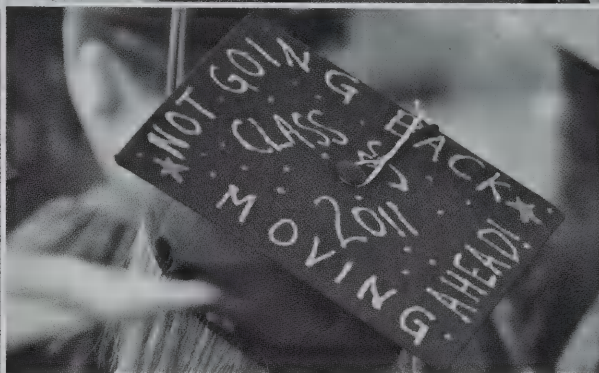 NOT GOING BACK
CLASS OF
2011
MOVING AHEAD!